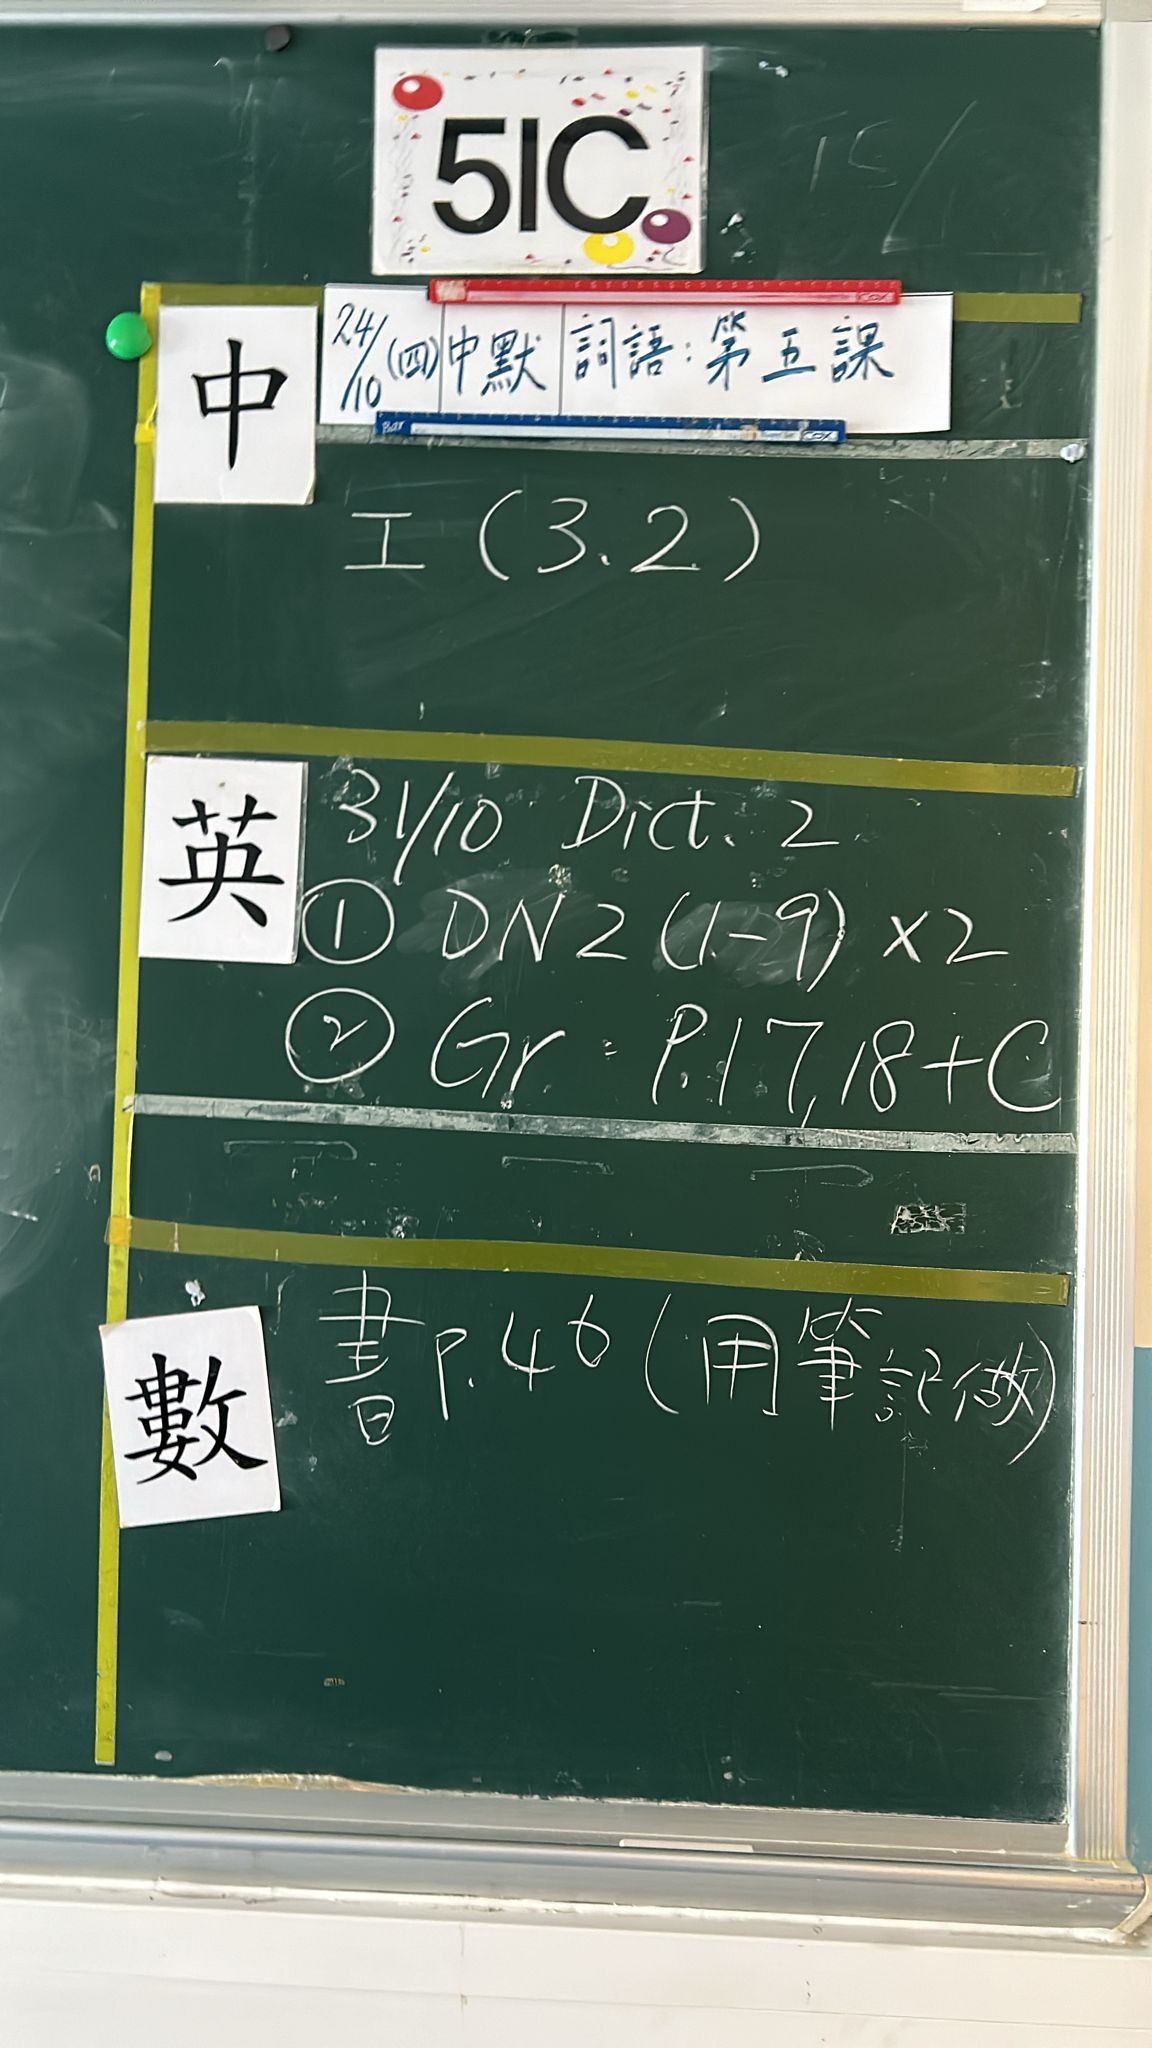 51C
中
24/10(四) 中默 詞語：第五課
工（3.2）
英
31/10 Dict. 2
① DN2 (1-9) ×2
② Gr. : P.17,18+C
數
書P.46(用筆記做)